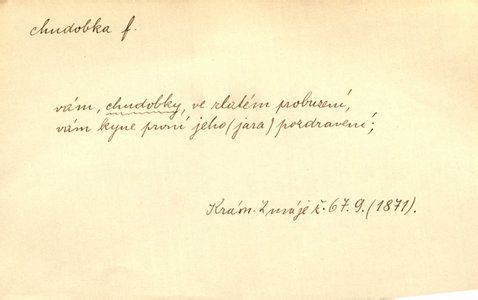 chudobka f.
vám, chudobky, ve zlatém probuzení,
vám kyne první jeho (jara) pozdravení;
Krám. Z máje č. 67.9. (1871).